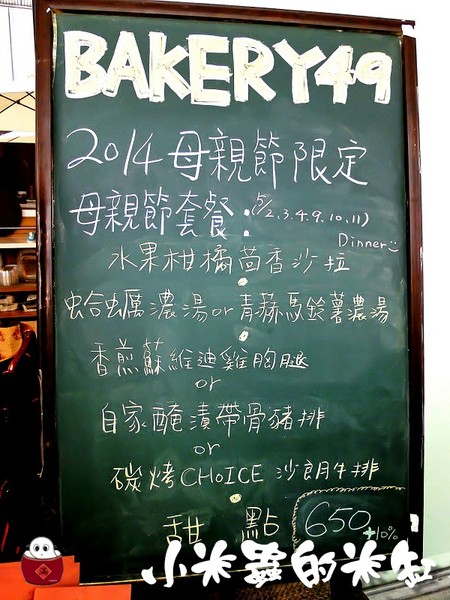 BAKERY49
2014母親節限定
母親節套餐:(5/2.3.4.9.10.11)
Dinner
水果柑橘茴香沙拉
蛤蠣濃湯or青蒜馬鈴薯濃湯
香煎蘇維迪雞胸腿
or
自家醃漬帶骨豬排
or
碳烤CHOICE 沙朗牛排
甜 點 650+10%
小米蟲的米缸